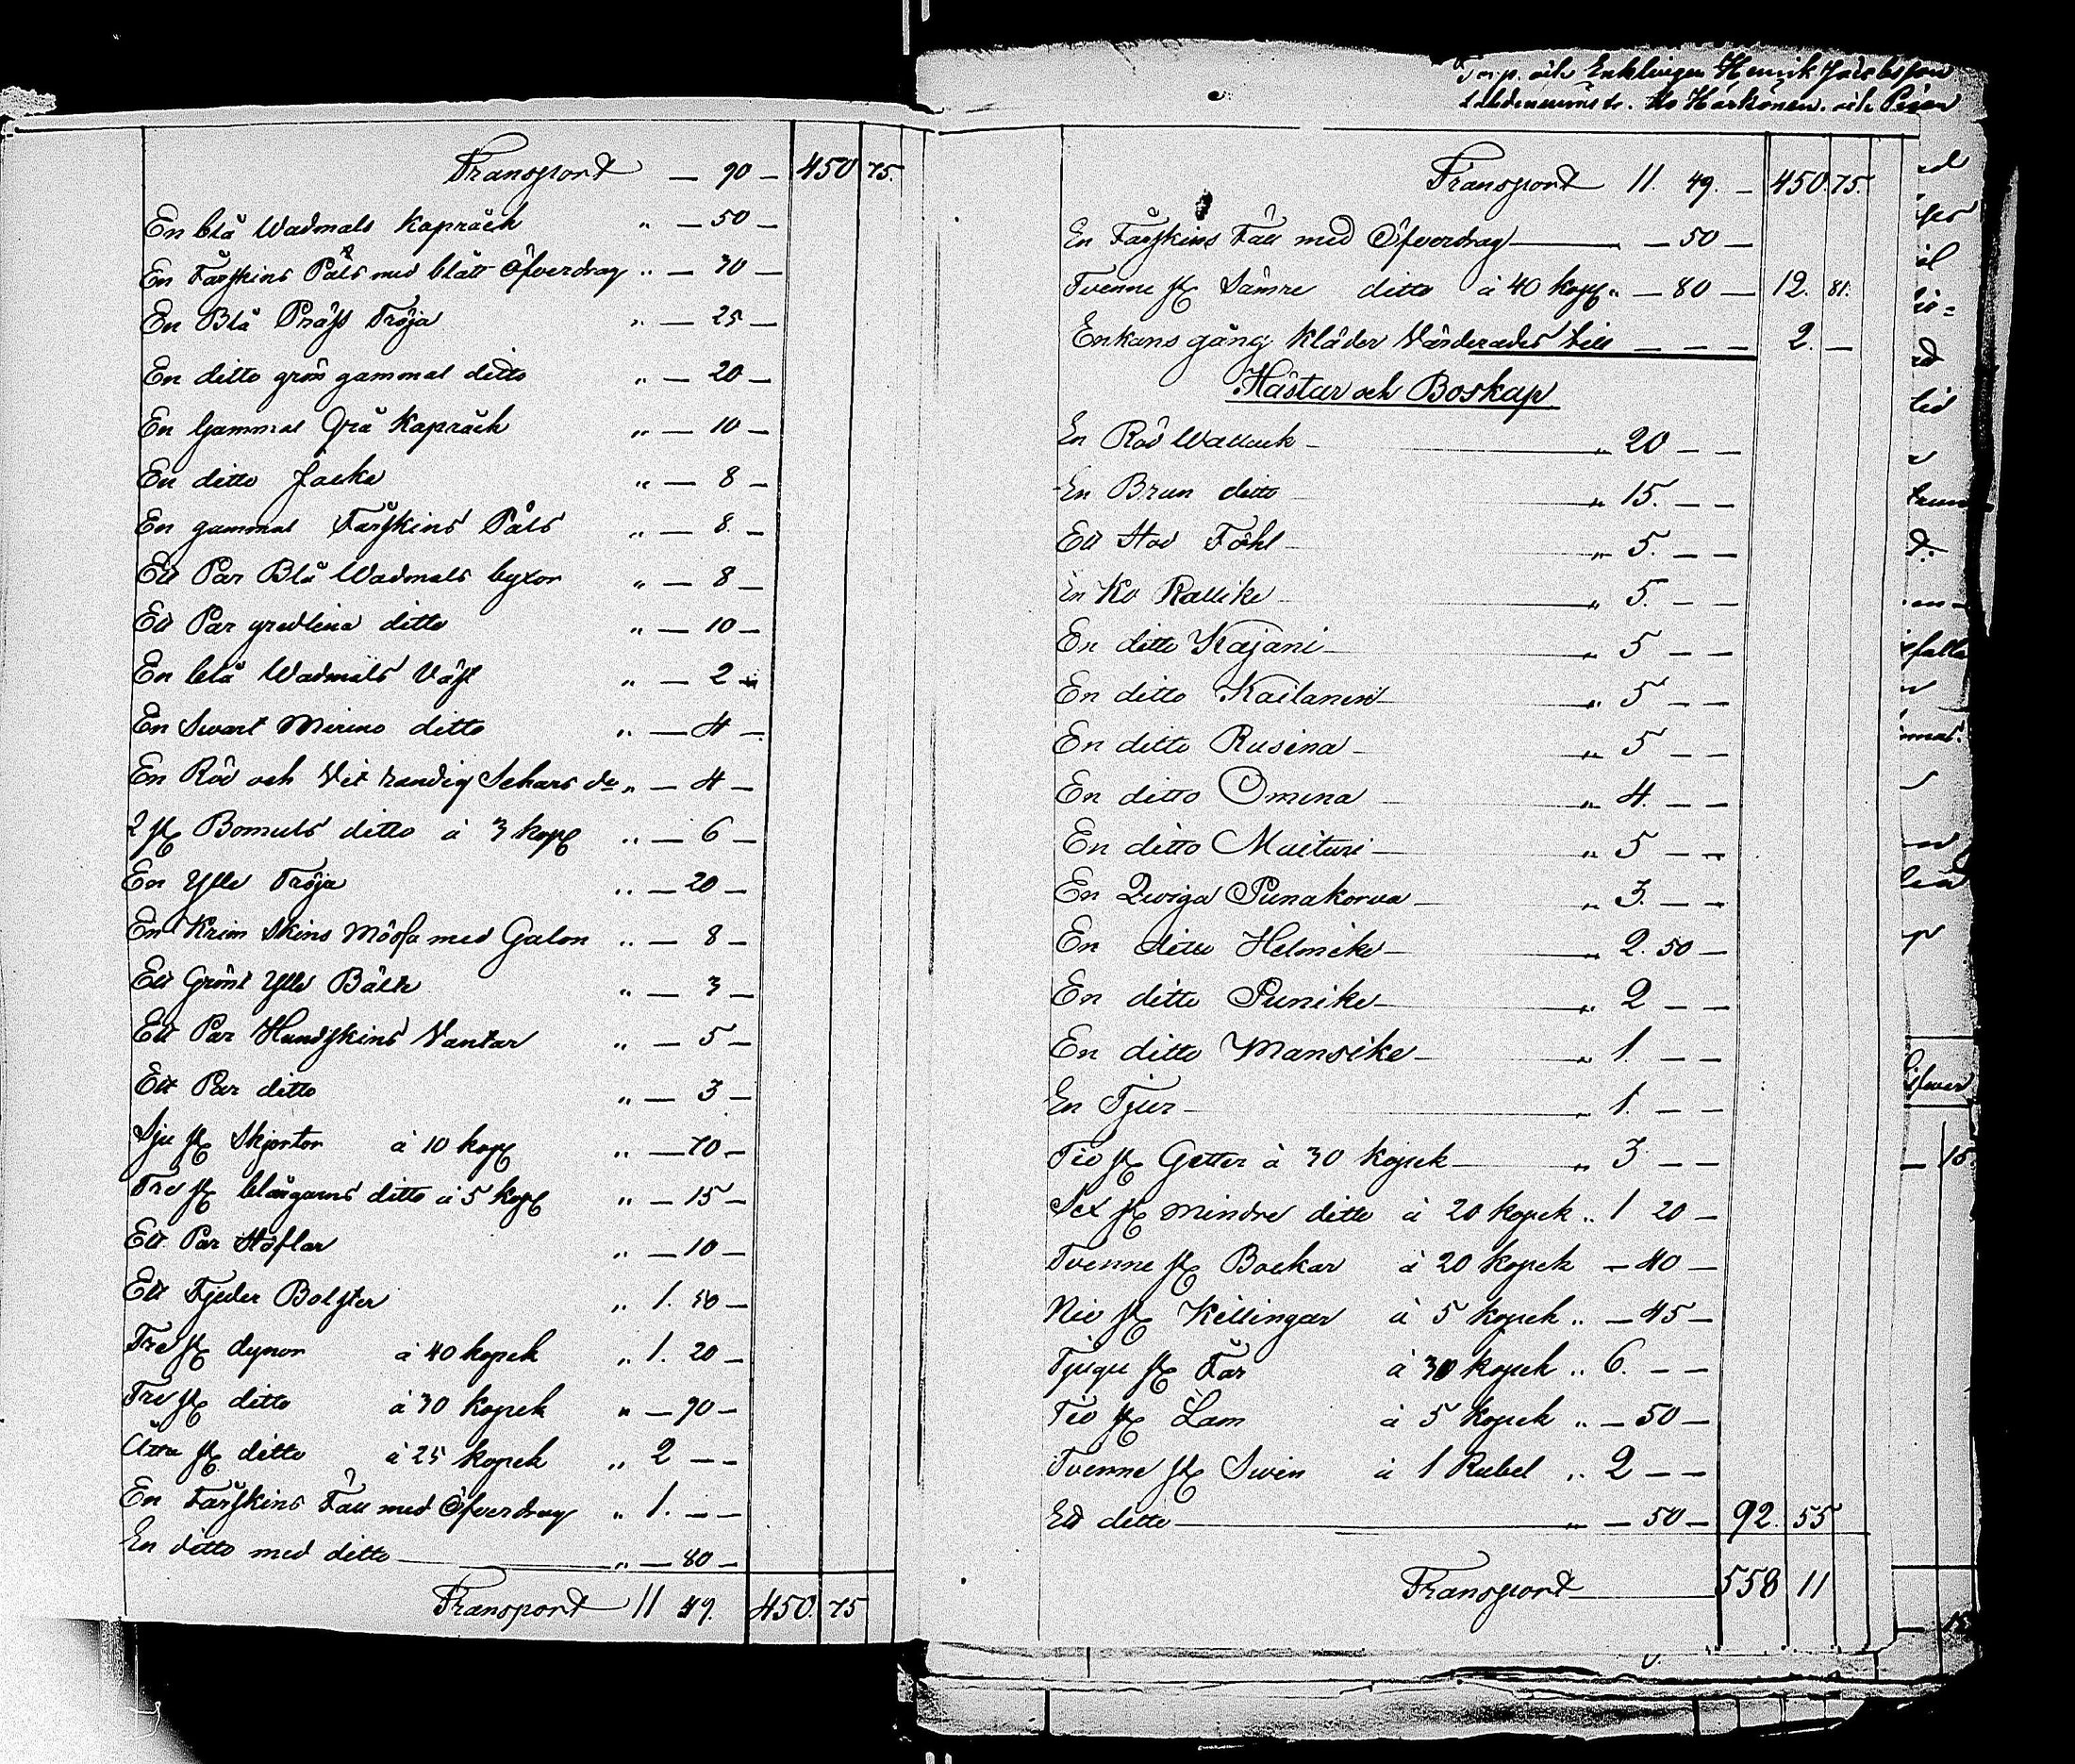 Transport — 90 — 450 75.
En blå Wadmals Kapråck " — 50 —
En Fårskins Päls med blått Öfverdrag " — 70 —
En Blå Präss Tröja " — 25 —
En ditto grön gammal ditto " — 20 —
En Gammal Grå Kapråck " — 10 —
En ditto Jacka " — 8 —
En gammal Fårskins Päls " — 8. —
Ett Par Blå Wadmals byxor " — 8 —
Ett Par gredlina ditto " — 10 —
En blå Wadmals Väst " — 2 —
En Swart Merino ditto " — 4 —
En Röd och Vit randig Schars do " — 4 —
2 st Bomuls ditto à 3 kop " — 6 —
En Ylle Tröja " — 20 —
En Krim Skins Mössa med Galon " — 8 —
Ett Grönt Ylle Bälte " — 3 —
Ett Par Hundskins Vantar " — 5 —
Ett Par ditto " — 3 —
Sju st Skjortor à 10 kop " — 70 —
Tre st blångarns ditto à 5 kop " — 15 —
Ett Par Stöflar " — 10 —
Ett Fjeder Bolster " 1. 50 —
Tre st dynor à 40 kopek " 1. 20 —
Tre st ditto à 30 kopek " — 90 —
Åtta st ditto à 25 kopek " 2 — —
En Fårskins Fäll med Öfverdrag " 1. — —
En ditto med ditto " — 80 —
Transport 11 49. 450. 75
Enklingen Henrik Jacobsson
Härkönen. och
Transport 11. 49. — 450. 75.
En Fårskins Fäll med Öfverdrag — 50 —
Tvenne st Sämre ditto à 40 kop " — 80 — 12. 81.
Enkans gång kläder Värderades till — — — 2. —
Hästar och Boskap
En Röd Wallack " 20 — —
En Brun ditto " 15. — —
Ett Sto Föhl " 5. — —
En Ko Rallike " 5. — —
En ditto Kajani " 5 — —
En ditto Kailanen " 5 — —
En ditto Rusina " 5 — —
En ditto Omena " 4. — —
En ditto Maituri " 5 — —
En Qwiga Punakorva " 3. — —
En ditto Helmike " 2. 50 —
En ditto Punike " 2 — —
En ditto Mansike " 1. — —
En Tjur " 1. — —
Tio st Getter à 30 kopek " 3 — —
Sex st mindre ditto à 20 kopek " 1 20 —
Tvenne st Bockar à 20 kopek — 40 —
Nio st Killingar à 5 kopek " — 45 —
Tjugu st Får à 30 kopek " 6. — —
Tio st Lam à 5 kopek " — 50 —
Tvenne st Swin à 1 Rubel " 2 — —
Ett ditto " — 50 — 92. 55
Transport 558 11